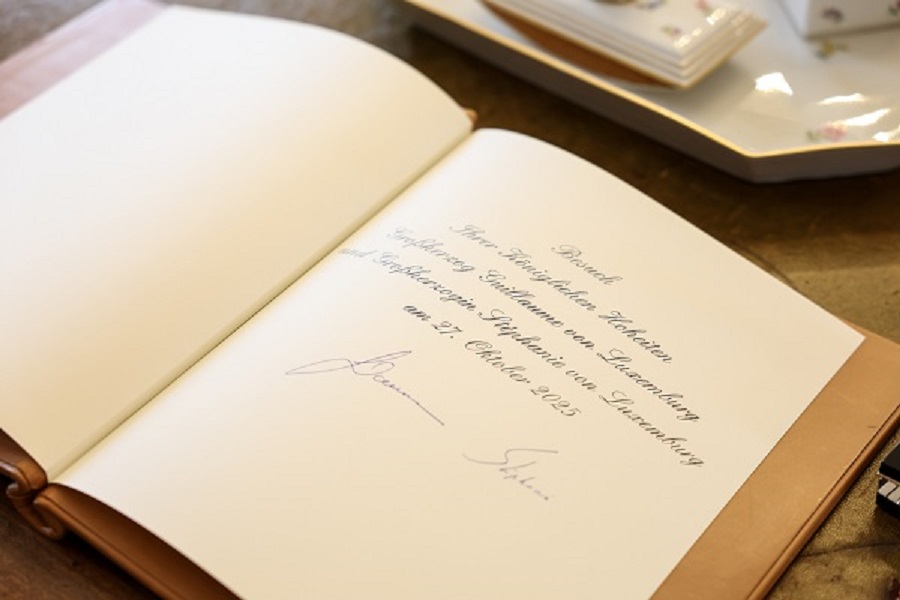 Besuch
Ihrer Königlichen Hoheiten
Großherzog Guillaume von Luxemburg
und Großherzogin Stéphanie von Luxemburg
am 27. Oktober 2025
Stéphanie